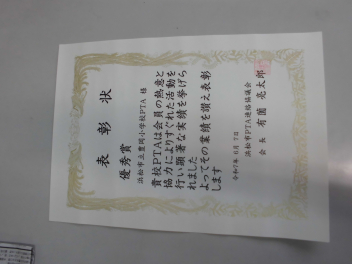 表彰状
優秀賞
浜松市立豊岡小学校PTA 様
貴校PTAは会員の熱意と
協力によりすぐれた活動を
行い顕著な実績を挙げら
れました
よってその業績を讃え表彰
します
令和7年 6月 7日
浜松市PTA連絡協議会
会長 有薗 亮太郎